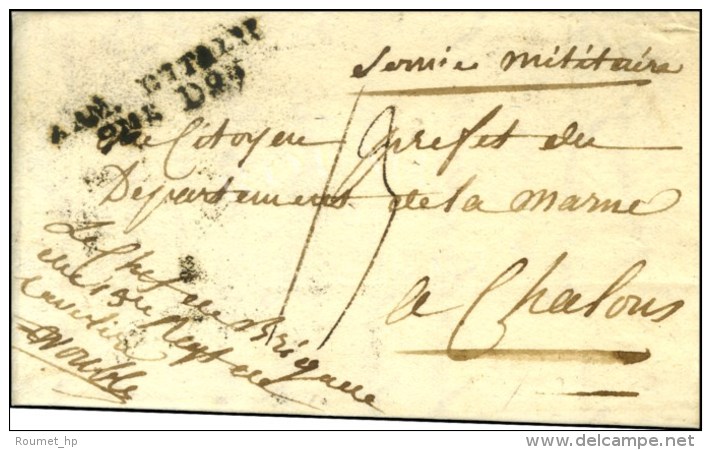 ARM. D'ITALIE
Service militaire
Citoyen prefet du
Departement de la marne
a Chalons
Le Chef de Brigade
du Regt de
15
Roumet_hp
delcampe.net